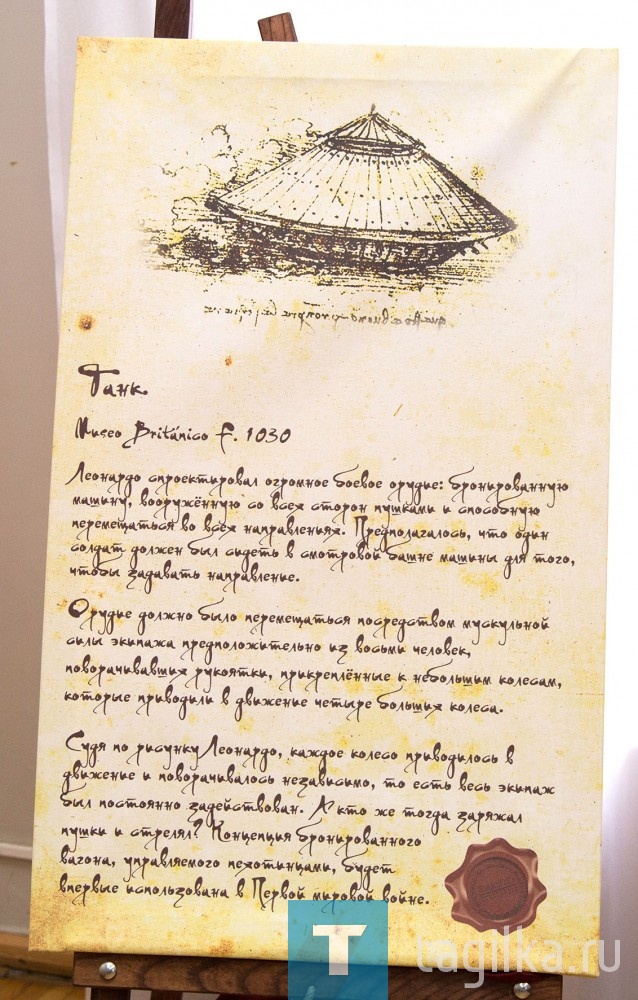 Танк.
Museo Británico f. 1030
Леонардо спроектировал огромное боевое орудие: бронированную
машину, вооружённую со всех сторон пушками и способную
перемещаться во всех направлениях. Предполагалось, что один
солдат должен был сидеть в смотровой башне машины для того,
чтобы задавать направление.
Орудие должно было перемещаться посредством мускульной
силы экипажа предположительно из восьми человек,
поворачивавших рукоятки, прикреплённые к небольшим колесам,
которые приводили в движение четыре больших колеса.
Судя по рисунку Леонардо, каждое колесо приводилось в
движение и поворачивалось независимо, то есть весь экипаж
был постоянно задействован. А кто же тогда заряжал
пушки и стрелял? Концепция бронированного
вагона, управляемого пехотинцами, будет
впервые использована в Первой мировой войне.
T
tagilka.ru